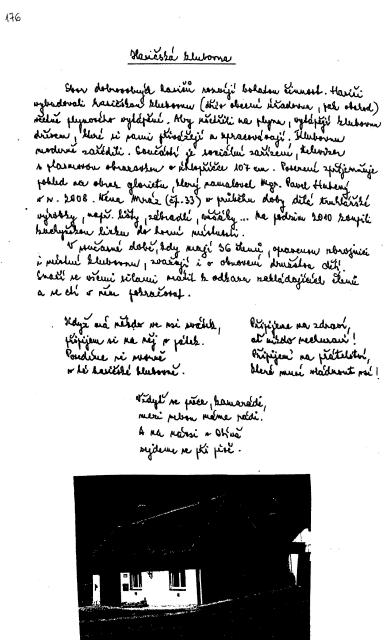 176
Hasičská klubovna
Sbor dobrovolných hasičů rozvíjí bohatou činnost. Hasiči
vybudovali hasičskou klubovnu (dříve obecní úřadovna, pak obchod)
včetně plynového vytápění. Aby ušetřili na plynu, vytápějí klubovnu
dřevem, které si sami přivážejí a zpracovávají. Klubovnu
moderně zařídili. Součástí je sociální zařízení, televizor
s plazmovou obrazovkou o úhlopříčce 107 cm. Posezení zpříjemňuje
pohled na obraz gloriety, který namaloval Mgr. Pavel
v r. 2008. Mráz (čp. 33) v průběhu doby dělá truhlářské
výrobky, např. lišty, zábradlí, věšáky ... Na podzim 2010 koupili
kuchyňskou linku do horní místnosti.
V současné době, kdy mají 36 členů, opravenou zbrojnici
i místní klubovnu, uvažují i o obnovení družstva dětí.
Snaží se všemi silami vrátit k odkazu zakládajících členů
a se ctí v něm pokračovat.
Když má někdo ve vsi svátek,
připijem si na něj v pátek.
Posedíme si svorně
v té hasičské klubovně.
Připijeme na zdraví,
ať nikdo nechuraví!
Připijem na přátelství,
které musí vládnout vsí!
Vždyť se přece, kamarádi,
mezi sebou máme rádi.
A na návsi v
sejdeme se při pivě.